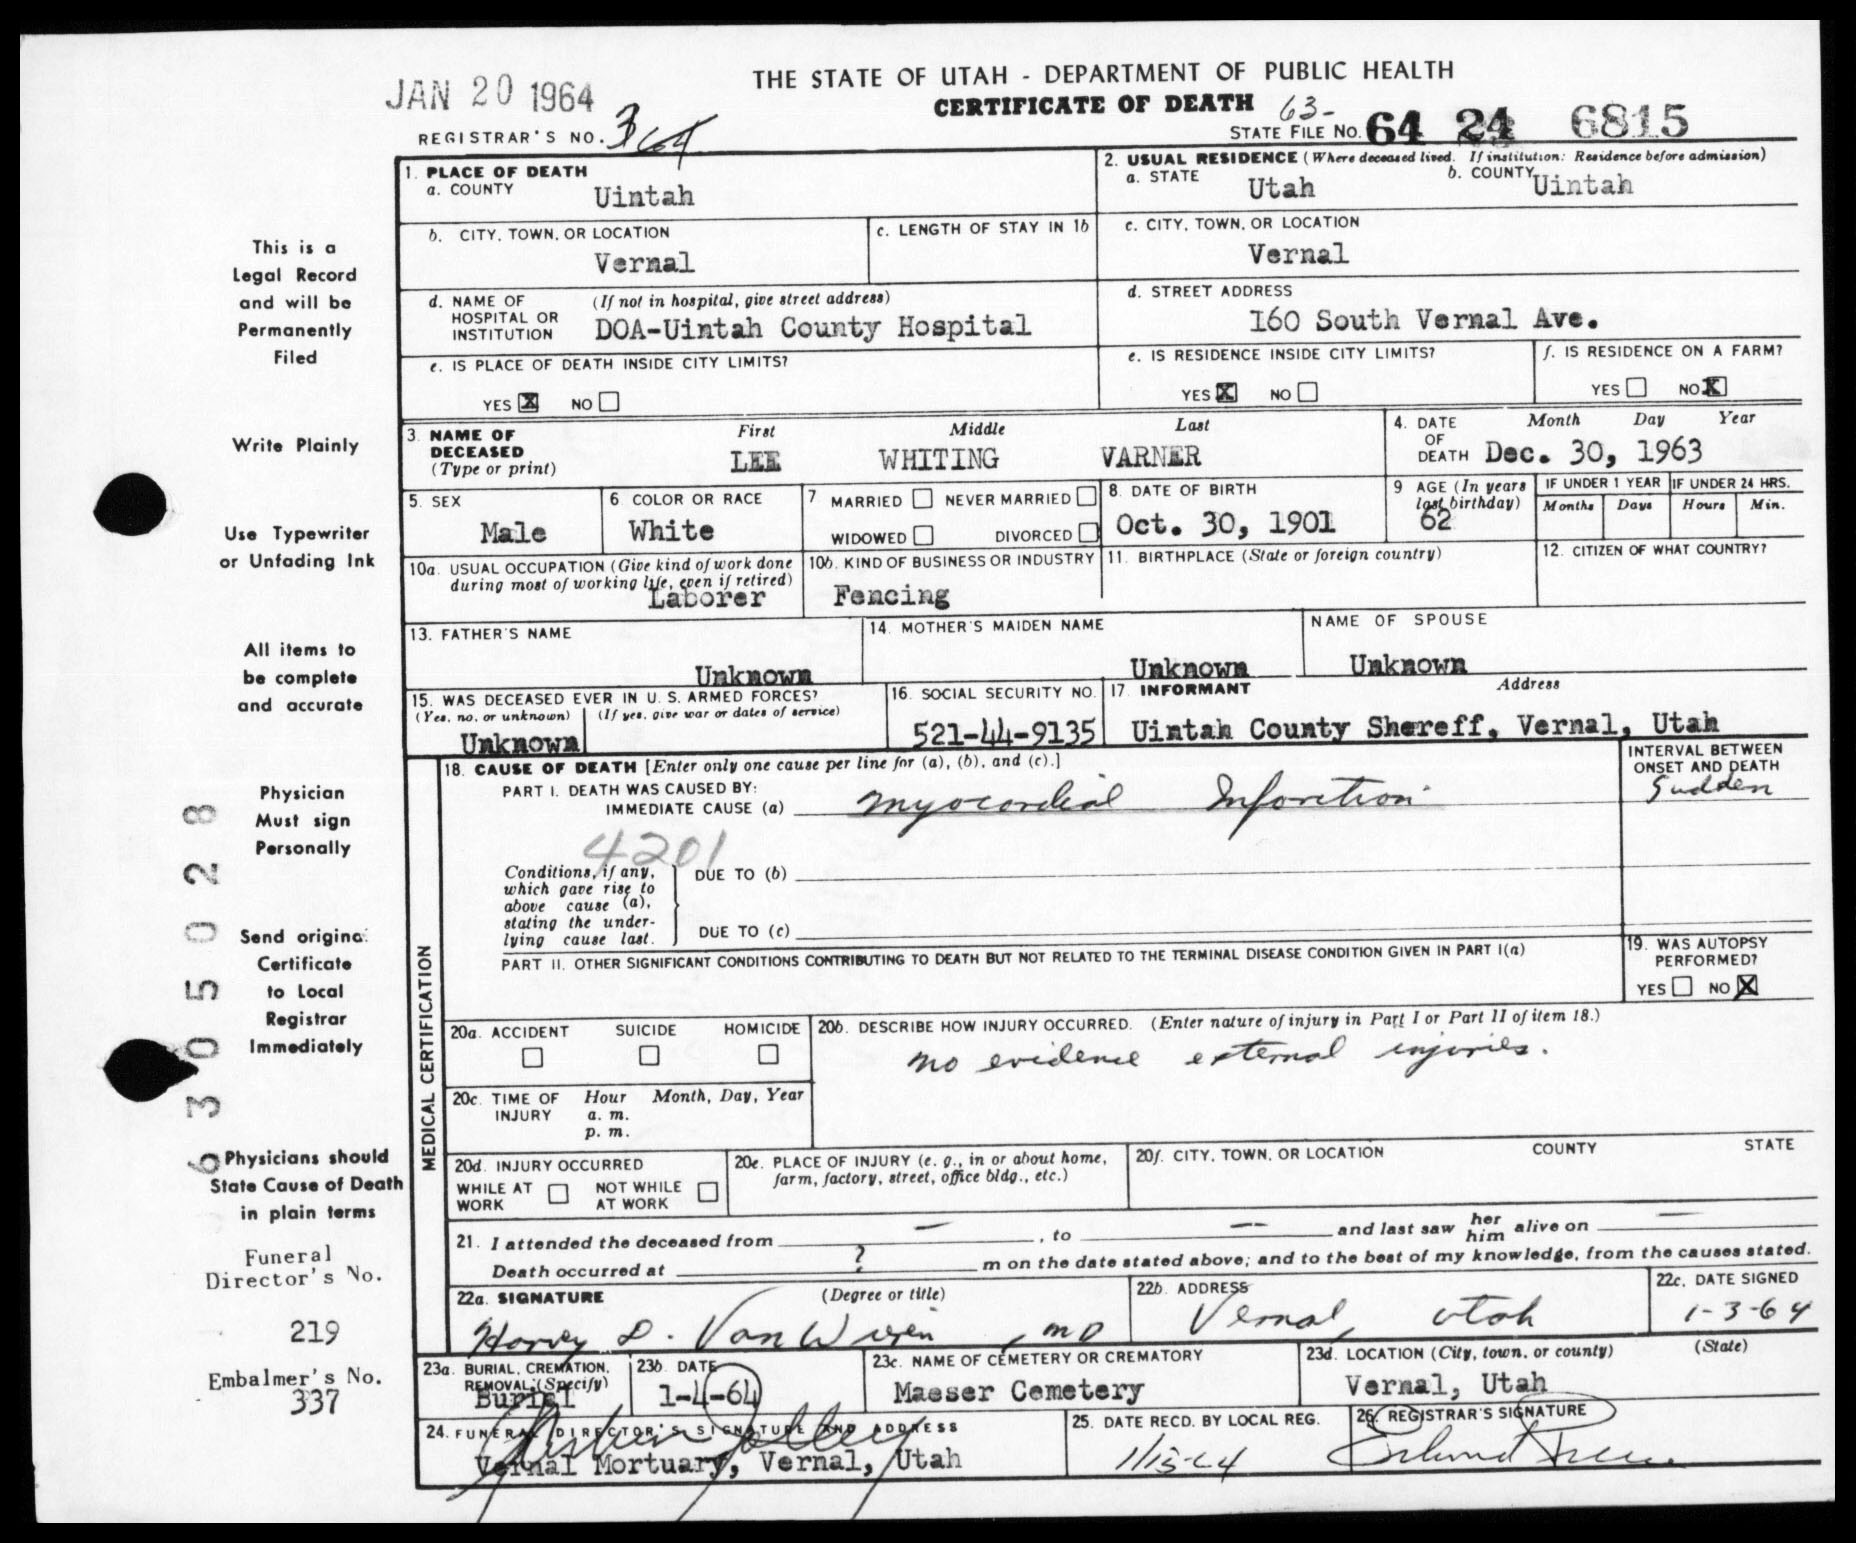 JAN 20 1964
THE STATE OF UTAH - DEPARTMENT OF PUBLIC HEALTH
CERTIFICATE OF DEATH
63-
REGISTRAR'S NO.
STATE FILE NO. 64 24 6815
1. PLACE OF DEATH
a. COUNTY
Uintah
2. USUAL RESIDENCE (Where deceased lived. If institution: Residence before admission)
a. STATE
Utah
b. COUNTY
Uintah
b. CITY, TOWN, OR LOCATION
Vernal
c. LENGTH OF STAY IN 1b
c. CITY, TOWN, OR LOCATION
Vernal
d. NAME OF HOSPITAL OR INSTITUTION
(If not in hospital, give street address)
DOA-Uintah County Hospital
d. STREET ADDRESS
160 South Vernal Ave.
e. IS PLACE OF DEATH INSIDE CITY LIMITS?
YES X NO
e. IS RESIDENCE INSIDE CITY LIMITS?
YES X NO
f. IS RESIDENCE ON A FARM?
YES NO X
3. NAME OF DECEASED
(Type or print)
First Middle Last
LEE WHITING VARNER
4. DATE OF DEATH
Month Day Year
Dec. 30, 1963
5. SEX
Male
6. COLOR OR RACE
White
7 MARRIED NEVER MARRIED
WIDOWED DIVORCED
8. DATE OF BIRTH
Oct. 30, 1901
9 AGE (In years last birthday)
62
IF UNDER 1 YEAR
Months Days
IF UNDER 24 HRS.
Hours Min.
10a. USUAL OCCUPATION (Give kind of work done during most of working life, even if retired)
Laborer
10b. KIND OF BUSINESS OR INDUSTRY
Fencing
11. BIRTHPLACE (State or foreign country)
12. CITIZEN OF WHAT COUNTRY?
13. FATHER'S NAME
Unknown
14. MOTHER'S MAIDEN NAME
Unknown
NAME OF SPOUSE
Unknown
15. WAS DECEASED EVER IN U. S. ARMED FORCES?
(Yes, no, or unknown) (If yes, give war or dates of service)
Unknown
16. SOCIAL SECURITY NO.
521-44-9135
17. INFORMANT Address
Uintah County Shereff, Vernal, Utah
MEDICAL CERTIFICATION
18. CAUSE OF DEATH [Enter only one cause per line for (a), (b), and (c).]
PART I. DEATH WAS CAUSED BY:
IMMEDIATE CAUSE (a) Myocardial Infarction
INTERVAL BETWEEN ONSET AND DEATH
Sudden
4201
Conditions, if any, which gave rise to above cause (a), stating the underlying cause last.
DUE TO (b)
DUE TO (c)
PART II. OTHER SIGNIFICANT CONDITIONS CONTRIBUTING TO DEATH BUT NOT RELATED TO THE TERMINAL DISEASE CONDITION GIVEN IN PART I(a)
19. WAS AUTOPSY PERFORMED?
YES NO X
20a. ACCIDENT SUICIDE HOMICIDE
20b. DESCRIBE HOW INJURY OCCURRED. (Enter nature of injury in Part I or Part II of item 18.)
no evidence external injuries.
20c. TIME OF INJURY
Hour Month, Day, Year
a. m.
p. m.
20d. INJURY OCCURRED
WHILE AT WORK NOT WHILE AT WORK
20e. PLACE OF INJURY (e. g., in or about home, farm, factory, street, office bldg., etc.)
20f. CITY, TOWN, OR LOCATION COUNTY STATE
21. I attended the deceased from —, to — and last saw her him alive on —
Death occurred at ? m on the date stated above; and to the best of my knowledge, from the causes stated.
22a. SIGNATURE (Degree or title)
Harvey D. Van Wagen, MD
22b. ADDRESS
Vernal, Utah
22c. DATE SIGNED
1-3-64
23a. BURIAL, CREMATION, REMOVAL: (Specify)
Burial
23b. DATE
1-4-64
23c. NAME OF CEMETERY OR CREMATORY
Maeser Cemetery
23d. LOCATION (City, town, or county) (State)
Vernal, Utah
24. FUNERAL DIRECTOR'S SIGNATURE AND ADDRESS
Vernal Mortuary, Vernal, Utah
25. DATE RECD. BY LOCAL REG.
1/15-64
26. REGISTRAR'S SIGNATURE
This is a
Legal Record
and will be
Permanently
Filed
Write Plainly
Use Typewriter
or Unfading Ink
All items to
be complete
and accurate
Physician
Must sign
Personally
Send original
Certificate
to Local
Registrar
Immediately
Physicians should
State Cause of Death
in plain terms
Funeral
Director's No.
219
Embalmer's No.
337
6305028